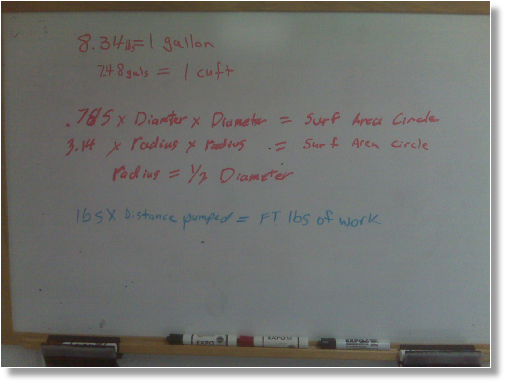 8.34lbs=1 gallon
7.48gals = 1 cuft
.785 x Diameter x Diameter = Surf Area Circle
3.14 x radius x radius .= Surf Area circle
radius = 1/2 Diameter
lbs x Distance pumped = FT lbs of work
EXPO EXPO EXPO